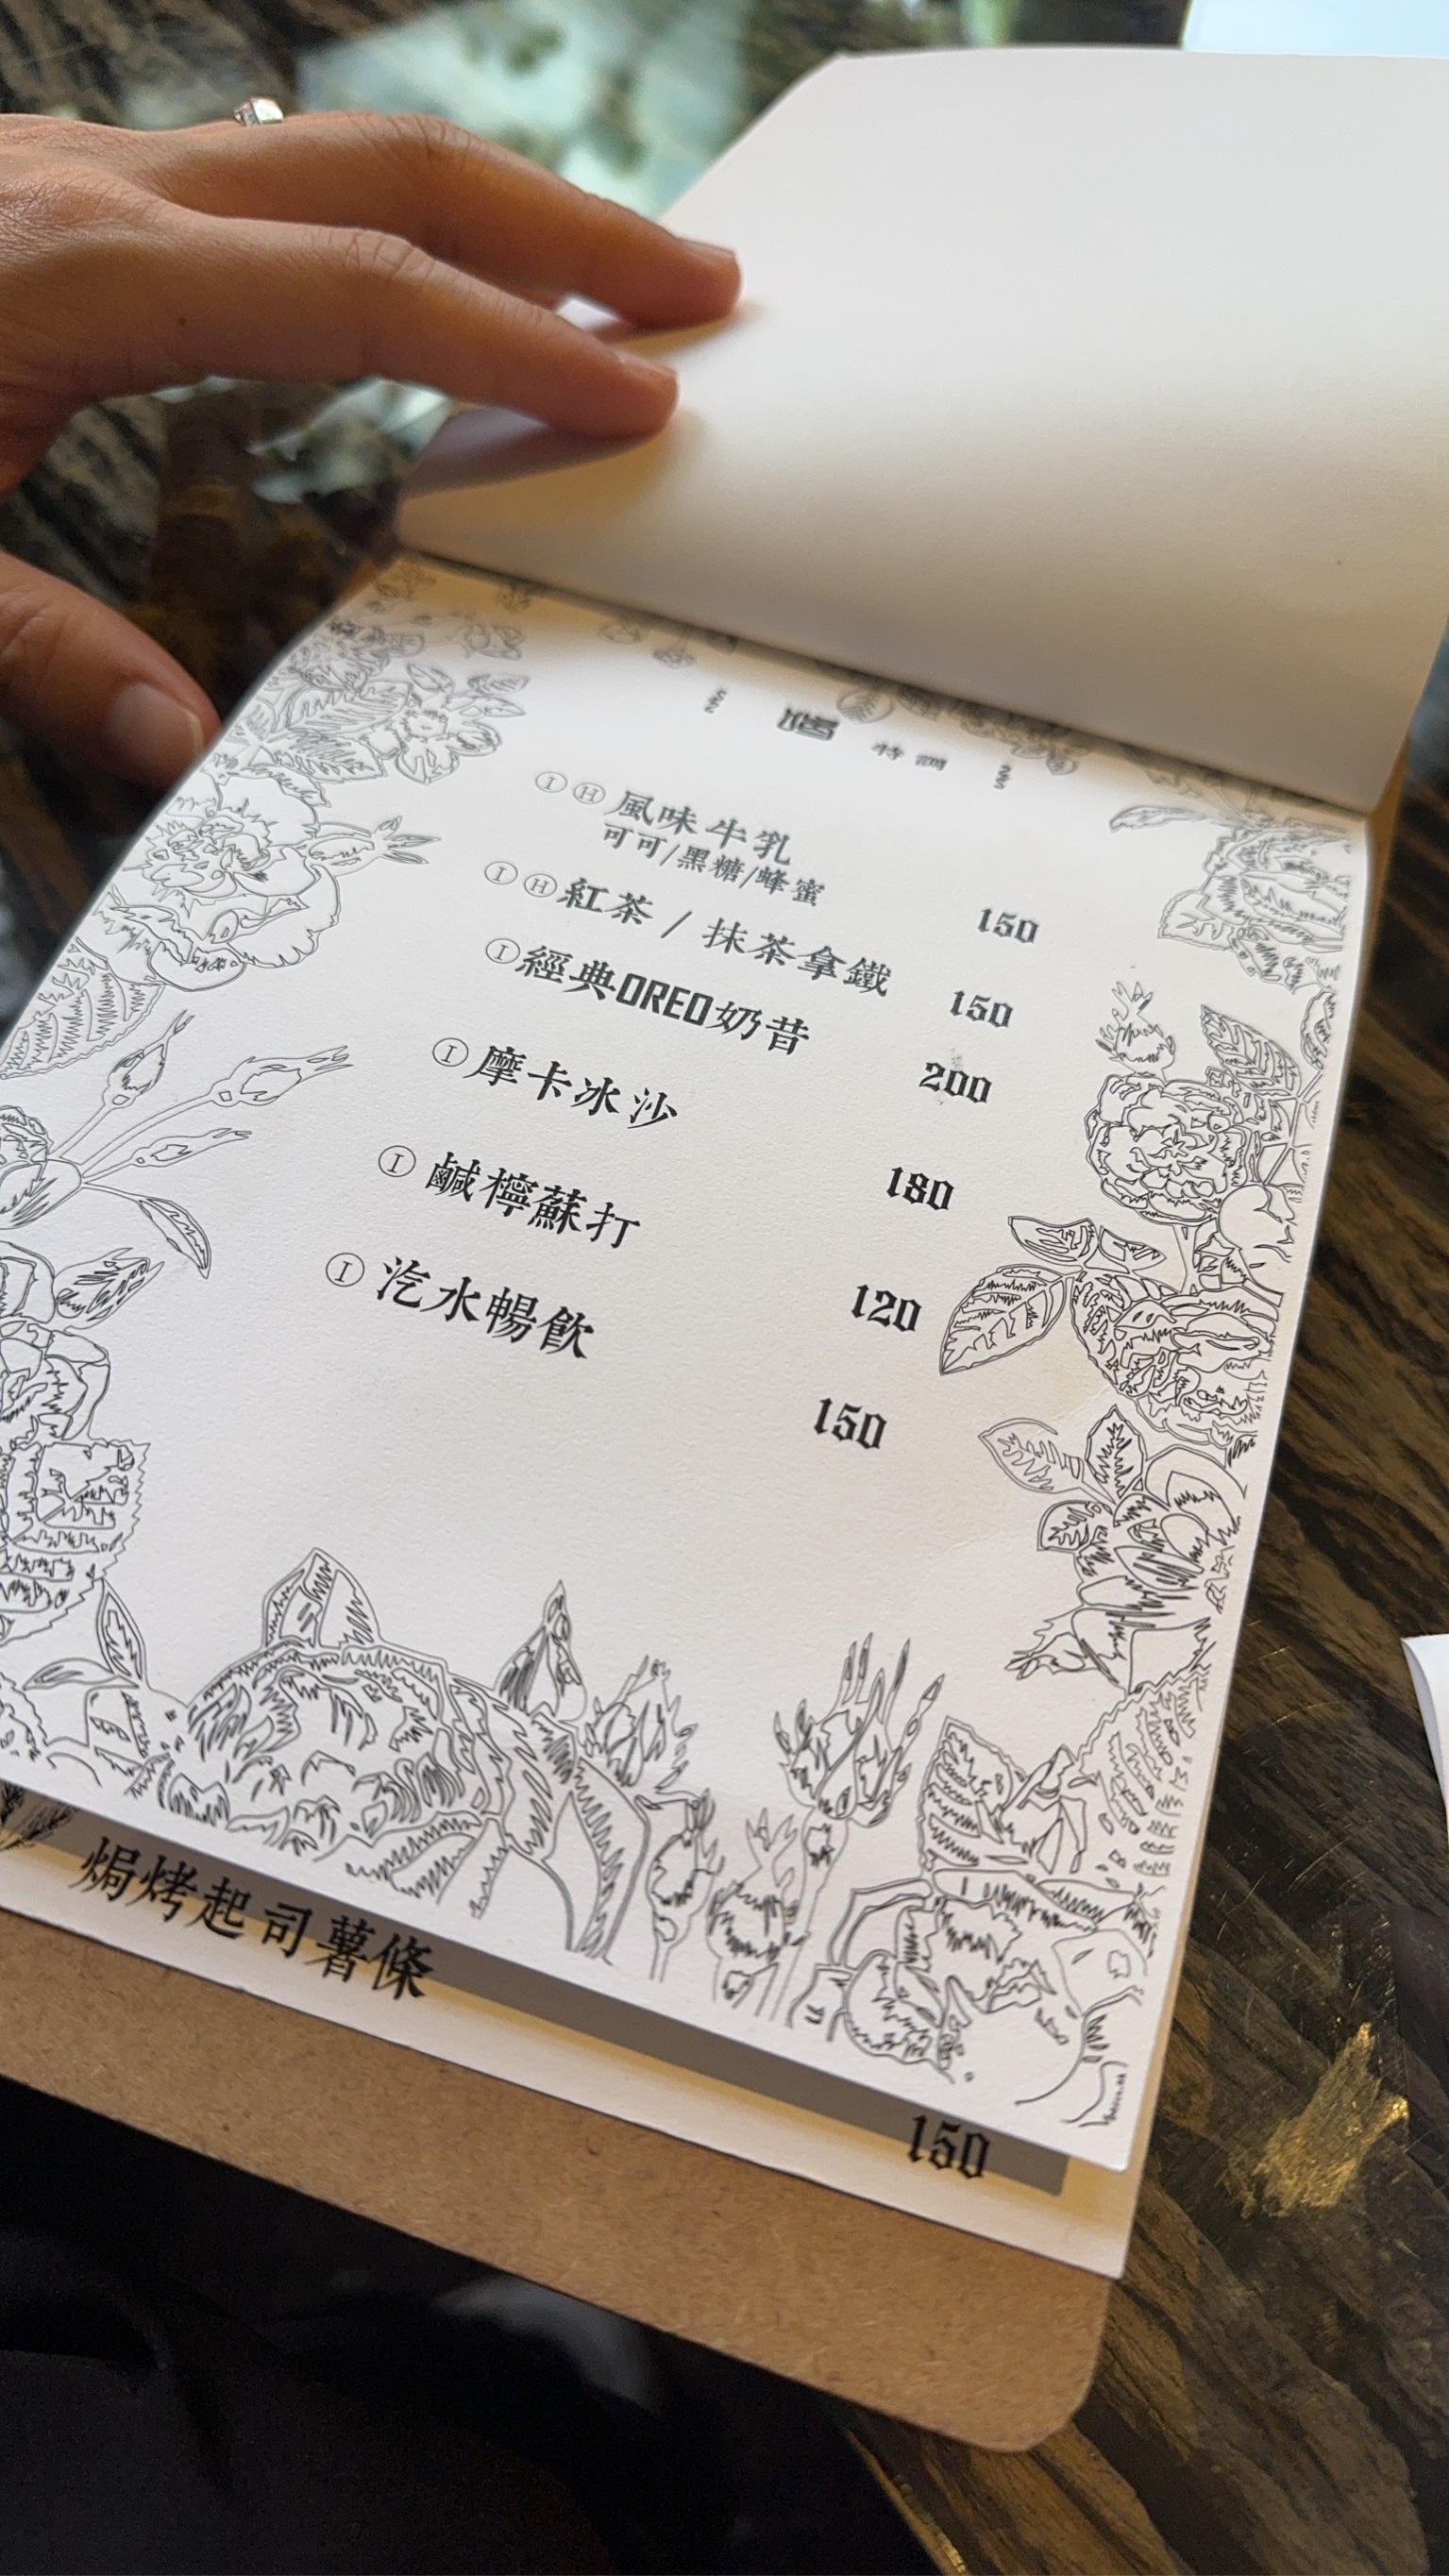 特調
Ⓘ Ⓗ 風味牛乳 150
可可/黑糖/蜂蜜
Ⓘ Ⓗ 紅茶 / 抹茶拿鐵 150
Ⓘ 經典OREO奶昔 200
Ⓘ 摩卡冰沙 180
Ⓘ 鹹檸蘇打 120
Ⓘ 汽水暢飲 150
焗烤起司薯條 150